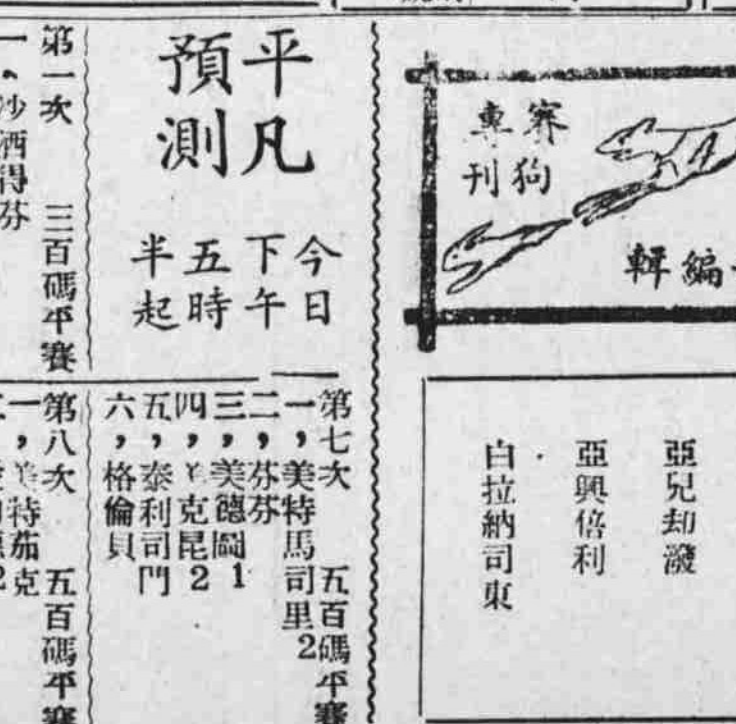 賽狗
專刊
編輯
亞兒却潑
亞興倍利
白拉納司東
平凡
預測
今日
下午
五時
半起
第一次 三百碼平賽
一、沙洒得芬
第七次 五百碼平賽
一，美特馬司里2
二，芬芬
三，美德關1
四，美克昆2
五，泰利司門
六，格倫貝
第八次 五百碼平賽
一，美特茄克